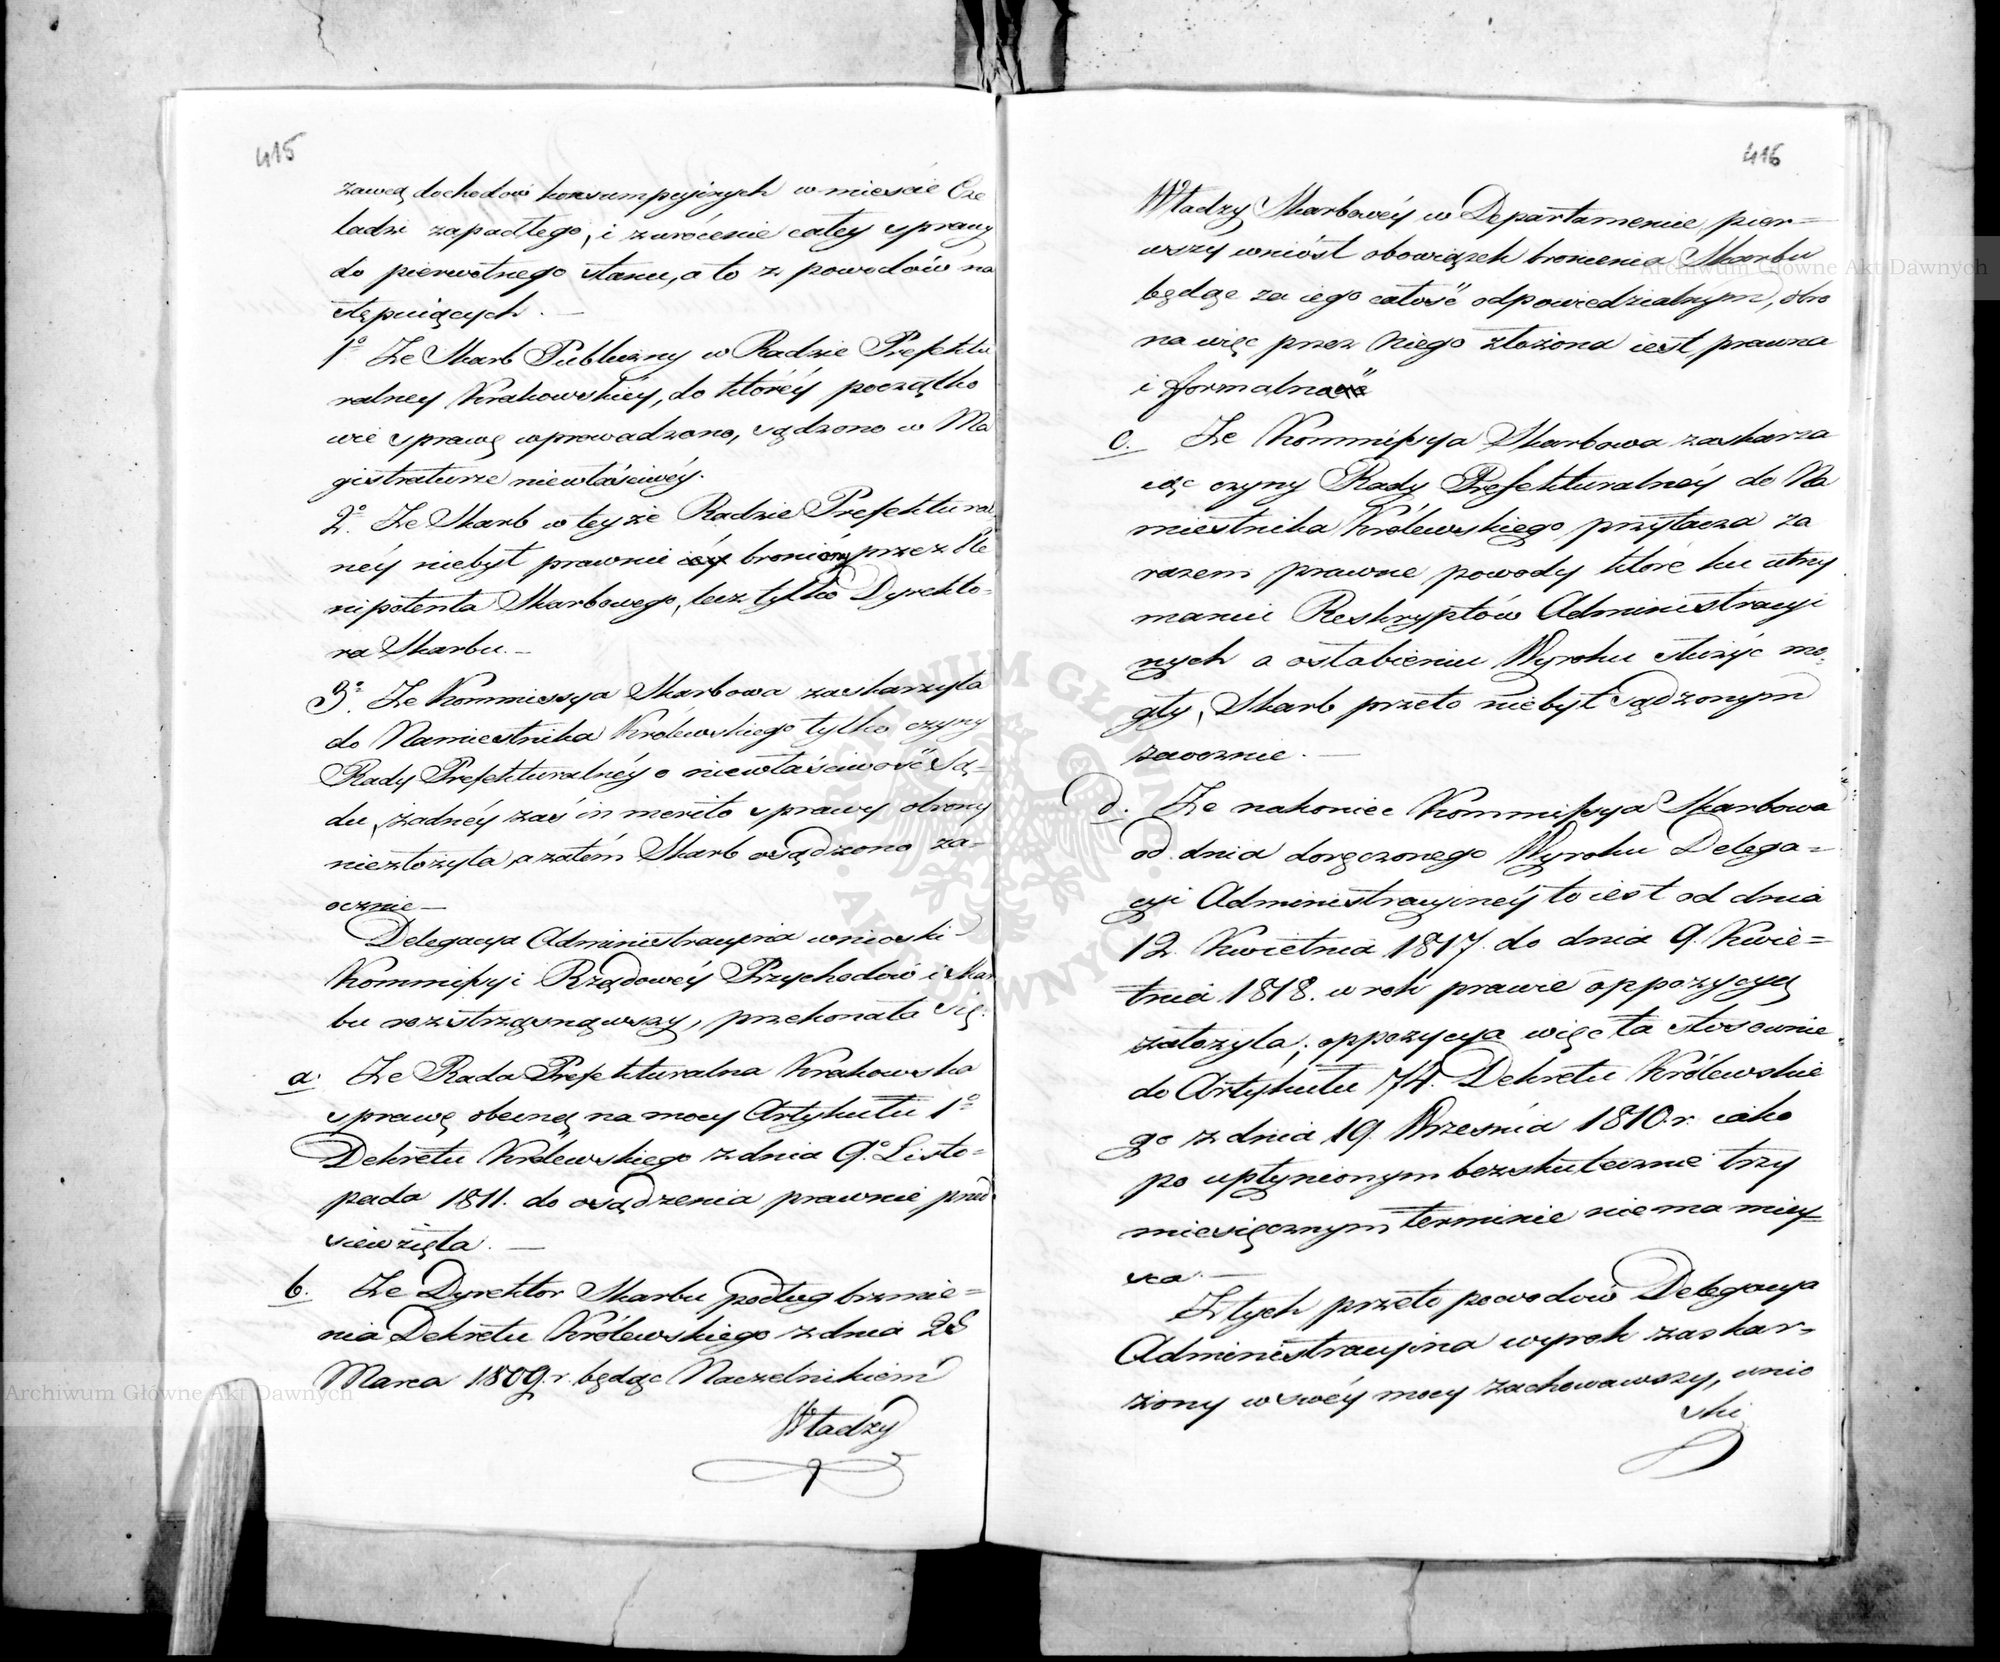 415
zawcą dochodów konsumpcyjnych w mieście Cze
ladzi zapadłego, i zwrócenie całey sprawy
do pierwotnego stanu, a to z powodów na
stępuiących. —
1° Że Skarb Publiczny w Radzie Prefektu
ralney Krakowskiéy, do któréy początko
wie sprawę wprowadzono, sądzono w Ma
gistraturze niewłaściwéy.
2° Że Skarb w teyże Radzie Prefektural
néy niebył prawnie broniony przez Ple
nipotenta Skarbowego, lecz tylko Dyrekto-
ra Skarbu. —
3° Że Kommissya Skarbowa zaskarzyła
do Namiestnika Królewskiego tylko czyny
Rady Prefekturalnéy o niewłaściwość Są-
du, żadnéy zaś in merito sprawy obrony
niezłożyła, a zatém Skarb osądzono za-
ocznie —
Delegacya Administracyina wnioski
Kommissyi Rządowéy Przychodów i Skar
bu rozstrzągnąwszy, przekonała się.
a. Że Rada Prefekturalna Krakowska
sprawę obecną na mocy Artykułu 1°
Dekretu Królewskiego z dnia 9° Listo-
pada 1811. do osądzenia prawnie przed
siewzięła. —
b. Że Dyrektor Skarbu podług brzmie=
nia Dekretu Królewskiego z dnia 28
Marca 1809.r. będąc Naczelnikiem
Władzy
416
Władzy Skarbowéy w Departamencie, pier=
wszy wniósł obowiązek bronienia Skarbu
będąc za iego całość odpowiedzialnym, obro
na więc przez Niego złożona iest prawna
i formalna
c. Że Kommissya Skarbowa zaskarza
iąc czyny Rady Prefekturalnéy do Na
miestnika Królewskiego przytacza za
razem prawne powody które ku utrzy
maniu Reskryptów Administracyi
nych a osłabieniu Wyroku służyć mo-
gły, Skarb przeto niebył sądzonym
zaocznie. —
d. Że nakoniec Kommissya Skarbowa
od dnia doręczonego Wyroku Delega=
cyi Administracyinéy to iest od dnia
12. Kwietnia 1817. do dnia 9. Kwie=
tnia 1818. w rok prawie oppozycyą
założyła; oppozycya więc ta stosownie
do Artykułu 74. Dekretu Królewskie
go z dnia 19. Września 1810.r. iako
po upłynionym bezskutecznie trzy
miesięcznym terminie niema miey=
sca. —
Z tych przeto powodów Delegacya
Administracyina wyrok zaskar-
żony w swéy mocy zachowawszy, wnio
ski
Archiwum Główne Akt Dawnych
Archiwum Główne Akt Dawnych
ARCHIWUM GŁÓWNE AKT DAWNYCH